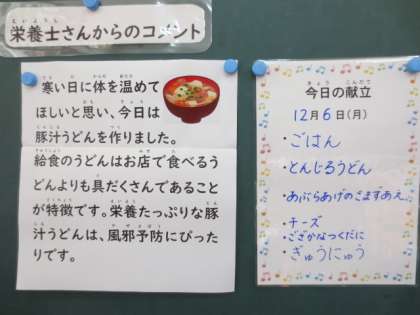 栄養士さんからのコメント
寒い日に体を温めて
ほしいと思い、今日は
豚汁うどんを作りました。
給食のうどんはお店で食べるう
どんよりも具だくさんであること
が特徴です。栄養たっぷりな豚
汁うどんは、風邪予防にぴった
りです。
今日の献立
12月6日(月)
・ごはん
・とんじるうどん
・あぶらあげのごまずあえ
・チーズ
・ござかなつくだに
・ぎゅうにゅう